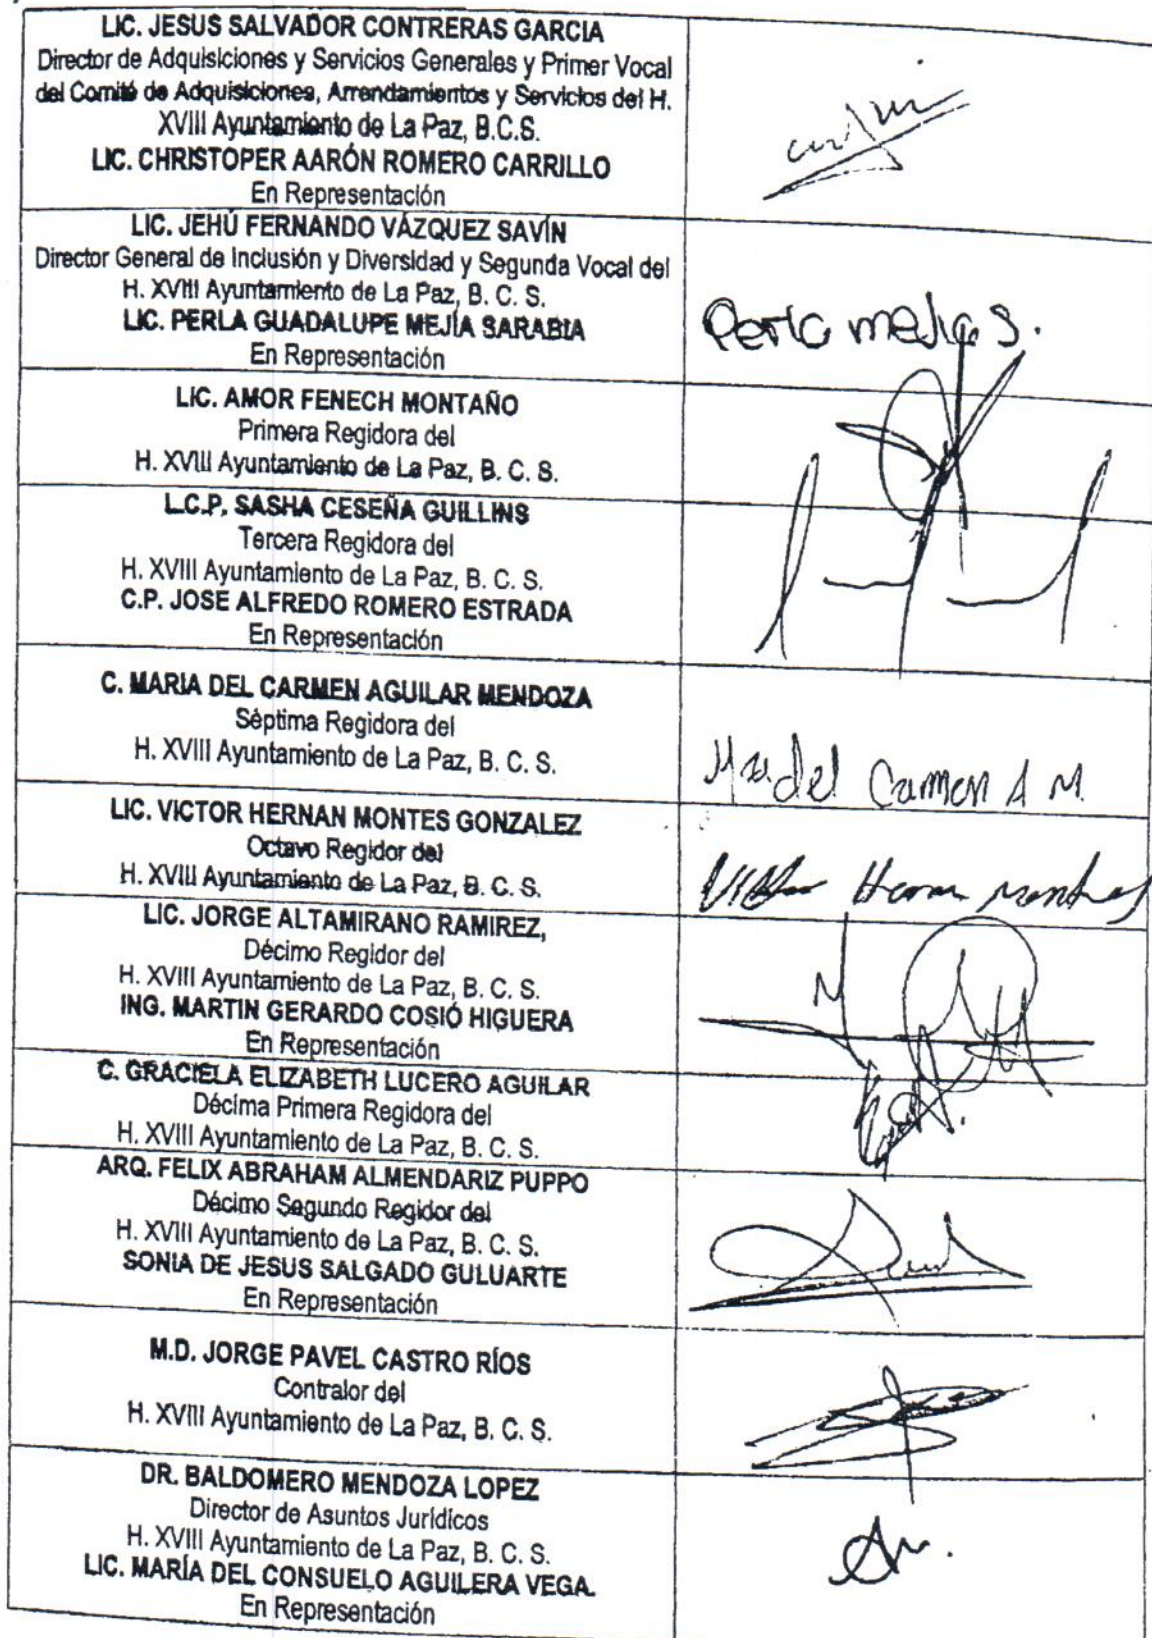 LIC. JESUS SALVADOR CONTRERAS GARCIA
Director de Adquisiciones y Servicios Generales y Primer Vocal
del Comité de Adquisiciones, Arrendamientos y Servicios del H.
XVIII Ayuntamiento de La Paz, B.C.S.
LIC. CHRISTOPER AARÓN ROMERO CARRILLO
En Representación
LIC. JEHÚ FERNANDO VÁZQUEZ SAVÍN
Director General de Inclusión y Diversidad y Segunda Vocal del
H. XVIII Ayuntamiento de La Paz, B. C. S.
LIC. PERLA GUADALUPE MEJÍA SARABIA
En Representación
Perla mejia S.
LIC. AMOR FENECH MONTAÑO
Primera Regidora del
H. XVIII Ayuntamiento de La Paz, B. C. S.
L.C.P. SASHA CESEÑA GUILLINS
Tercera Regidora del
H. XVIII Ayuntamiento de La Paz, B. C. S.
C.P. JOSE ALFREDO ROMERO ESTRADA
En Representación
C. MARIA DEL CARMEN AGUILAR MENDOZA
Séptima Regidora del
H. XVIII Ayuntamiento de La Paz, B. C. S.
Ma del Carmen A M
LIC. VICTOR HERNAN MONTES GONZALEZ
Octavo Regidor del
H. XVIII Ayuntamiento de La Paz, B. C. S.
Victor Hernan Montes
LIC. JORGE ALTAMIRANO RAMIREZ,
Décimo Regidor del
H. XVIII Ayuntamiento de La Paz, B. C. S.
ING. MARTIN GERARDO COSIÓ HIGUERA
En Representación
C. GRACIELA ELIZABETH LUCERO AGUILAR
Décima Primera Regidora del
H. XVIII Ayuntamiento de La Paz, B. C. S.
ARQ. FELIX ABRAHAM ALMENDARIZ PUPPO
Décimo Segundo Regidor del
H. XVIII Ayuntamiento de La Paz, B. C. S.
SONIA DE JESUS SALGADO GULUARTE
En Representación
M.D. JORGE PAVEL CASTRO RÍOS
Contralor del
H. XVIII Ayuntamiento de La Paz, B. C. S.
DR. BALDOMERO MENDOZA LOPEZ
Director de Asuntos Jurídicos
H. XVIII Ayuntamiento de La Paz, B. C. S.
LIC. MARÍA DEL CONSUELO AGUILERA VEGA.
En Representación